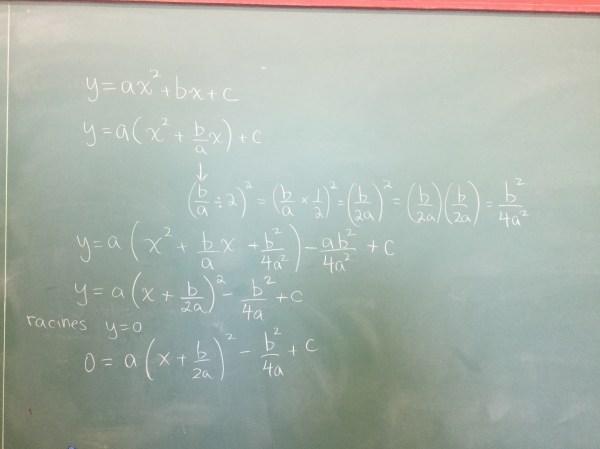 y=ax²+bx+c
y=a(x²+b/a x)+c
↓
(b/a÷2)²=(b/a×1/2)²=(b/2a)²=(b/2a)(b/2a)=b²/4a²
y=a(x²+b/a x+b²/4a²)-ab²/4a²+c
y=a(x+b/2a)²-b²/4a+c
racines y=0
0=a(x+b/2a)²-b²/4a+c